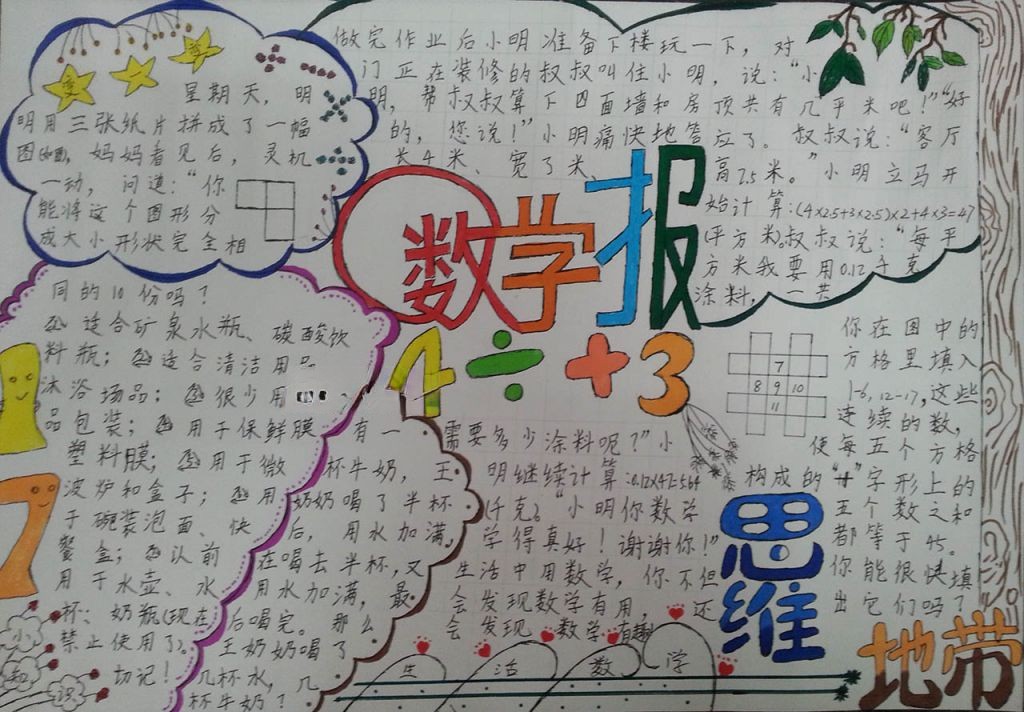 星期天，明
明用三张纸片拼成了一幅
图(如图)，妈妈看见后，灵机
一动，问道：“你
能将这个图形分
成大小形状完全相
同的10份吗？
做完作业后小明准备下楼玩一下，对
门正在装修的叔叔叫住小明，说：“小
明，帮叔叔算下四面墙和房顶共有几平米吧！”“好
的，您说！”小明痛快地答应了。叔叔说：“客厅
长4米、宽了米、高2.5米。”小明立马开
始计算：(4×2.5+3×2.5)×2+4×3=47
(平方米)。叔叔说：“每平
方米我要用0.12千克
涂料，一共
数学报
1÷+3
适合矿泉水瓶、碳酸饮
料瓶；适合清洁用品
沐浴场品；很少用
品包装；用于保鲜膜
塑料膜；用于微
波炉和盒子；用
于碗装泡面、快
餐盒；以前
用于水壶、水
杯、奶瓶(现在
禁止使用了)。
切记！
有一
杯牛奶，王
奶奶喝了半杯
后，用水加满，
在喝去半杯，又
用水加满，最
后喝完。那么
王奶奶喝了
几杯水，几
杯牛奶？
需要多少涂料呢？”小
明继续计算：0.12×47=5.64
(千克)。“小明你数学
学得真好！谢谢你！”
生活中用数学，你不但
会发现数学有用，还
会发现数学有趣
生活数学
7
8 9 10
11
你在图中的
方格里填入
1-6，12-17，这些
连续的数，
使每五个方格
构成的“十”字形上的
五个数之和
都等于45。
你能很快填
出它们吗？
思维
地带
7
小知识